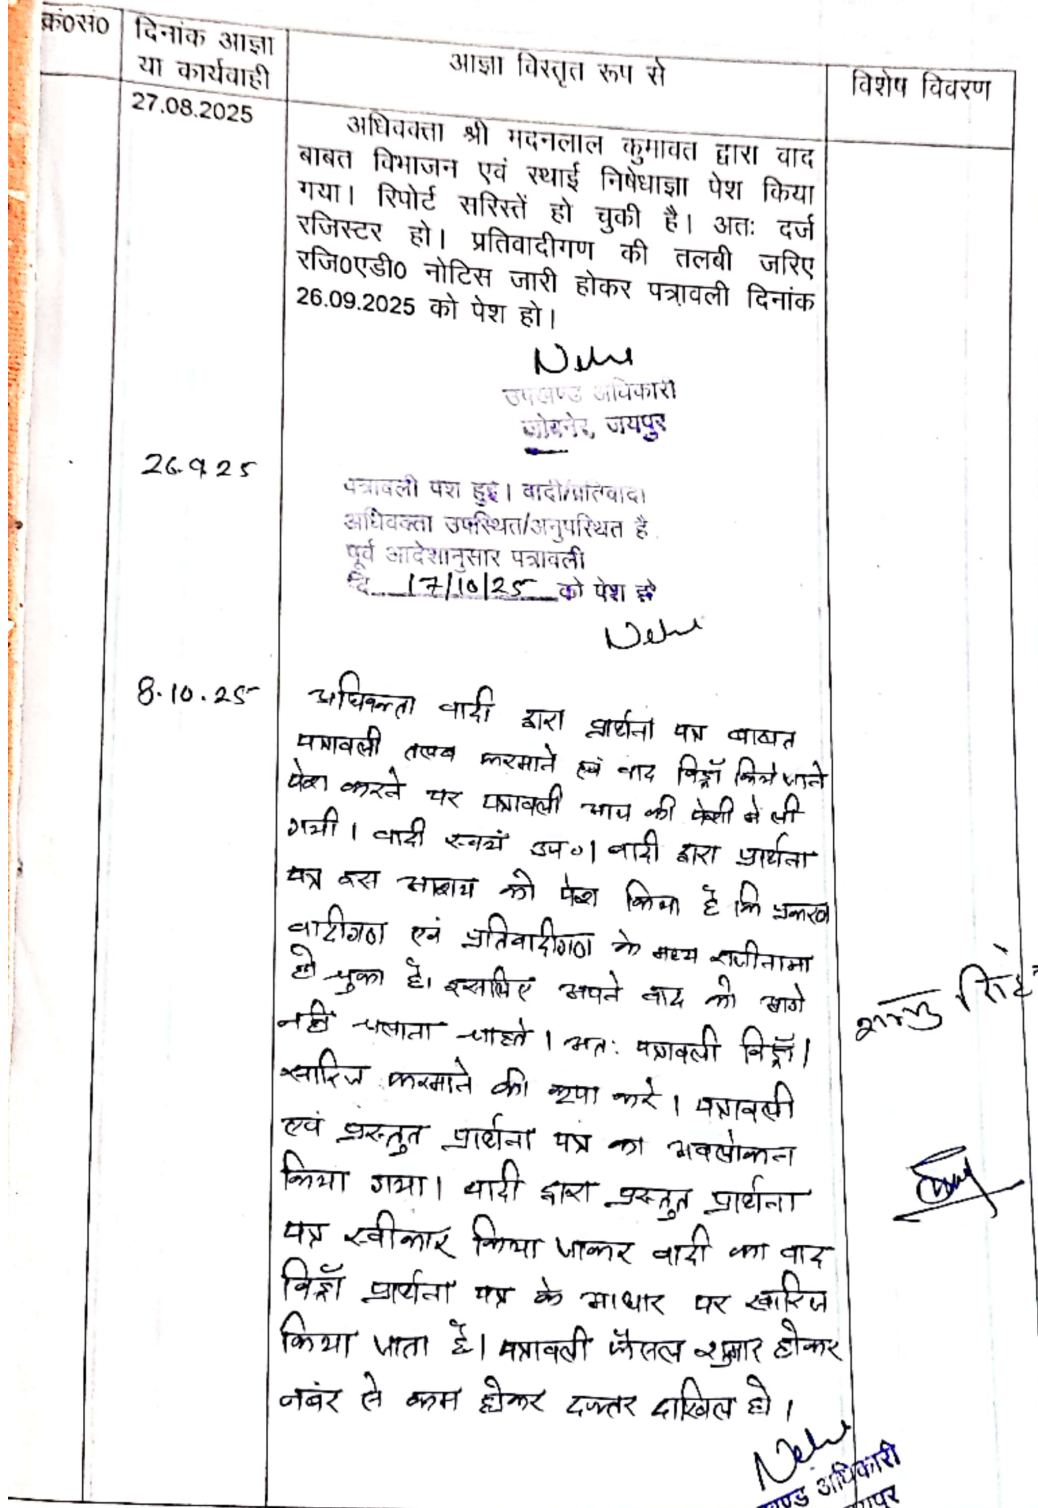 क्र०सं०
दिनांक आज्ञा
या कार्यवाही
आज्ञा विस्तृत रूप से
विशेष विवरण
27.08.2025
अधिवक्ता श्री मदनलाल कुमावत द्वारा वाद
बाबत विभाजन एवं स्थाई निषेधाज्ञा पेश किया
गया। रिपोर्ट सरिस्तें हो चुकी है। अतः दर्ज
रजिस्टर हो। प्रतिवादीगण की तलबी जरिए
रजि0एडी0 नोटिस जारी होकर पत्रावली दिनांक
26.09.2025 को पेश हो।
उपखण्ड अधिकारी
जोबनेर, जयपुर
26.9.25
पत्रावली पेश हुई। वादी/प्रतिवादी
अधिवक्ता उपस्थित/अनुपस्थित है
पूर्व आदेशानुसार पत्रावली
दि 17/10/25 को पेश हो
8.10.25
अधिवक्ता वादी द्वारा प्रार्थना पत्र बाबत
पत्रावली तलब फरमाने एवं वाद विड्रॉ किये जाने
पेश करने पर पत्रावली आज की पेशी में ली
गयी। वादी स्वयं उप०। वादी द्वारा प्रार्थना
पत्र इस आशय को पेश किया है कि प्रकरण
वादीगण एवं प्रतिवादीगण के मध्य राजीनामा
हो चुका है। इसलिए अपने वाद को आगे
नही चलाना चाहते। अतः पत्रावली विड्रॉ।
खारिज फरमाने की कृपा करे। पत्रावली
एवं प्रस्तुत प्रार्थना पत्र का अवलोकन
किया गया। वादी द्वारा प्रस्तुत प्रार्थना
पत्र स्वीकार किया जाकर वादी का वाद
विड्रॉ प्रार्थना पत्र के आधार पर खारिज
किया जाता है। पत्रावली फैसल शुमार होकर
नबंर से कम होकर दफ्तर दाखिल हो।
सिंह
अधिकारी